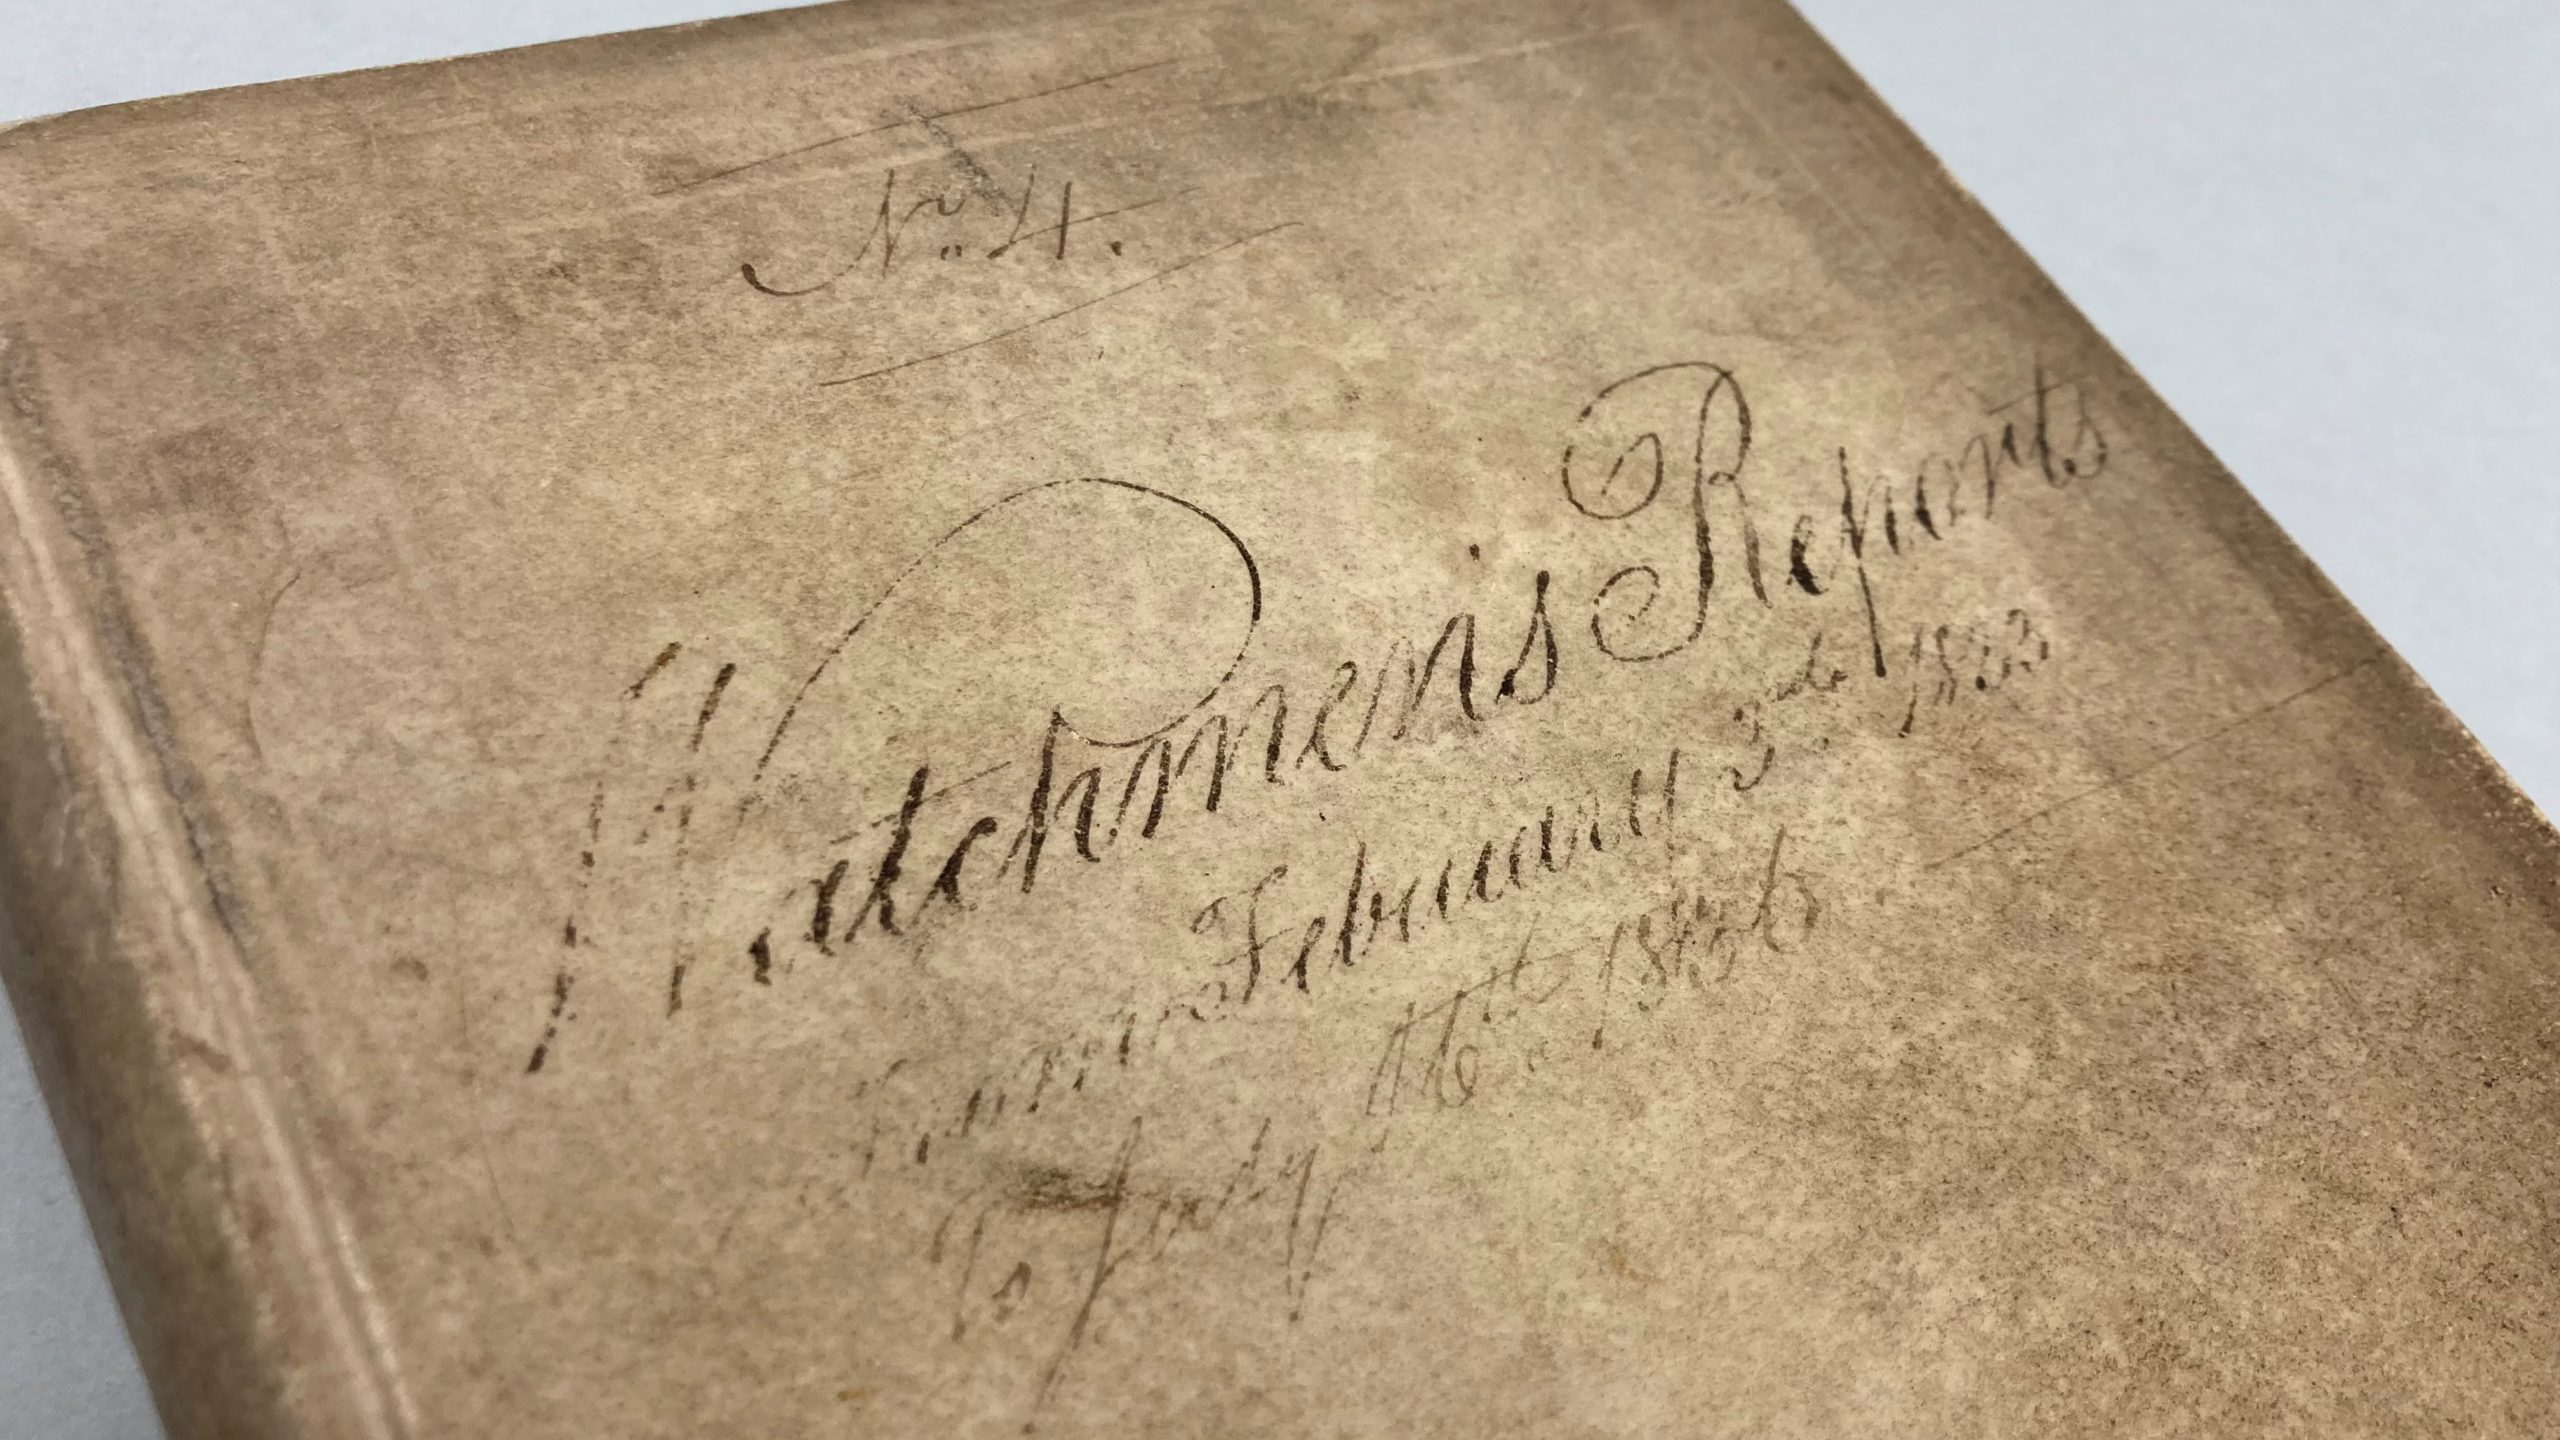 No. 4.
Watchmen's Reports
From February 3rd. 1823
To July 16th.